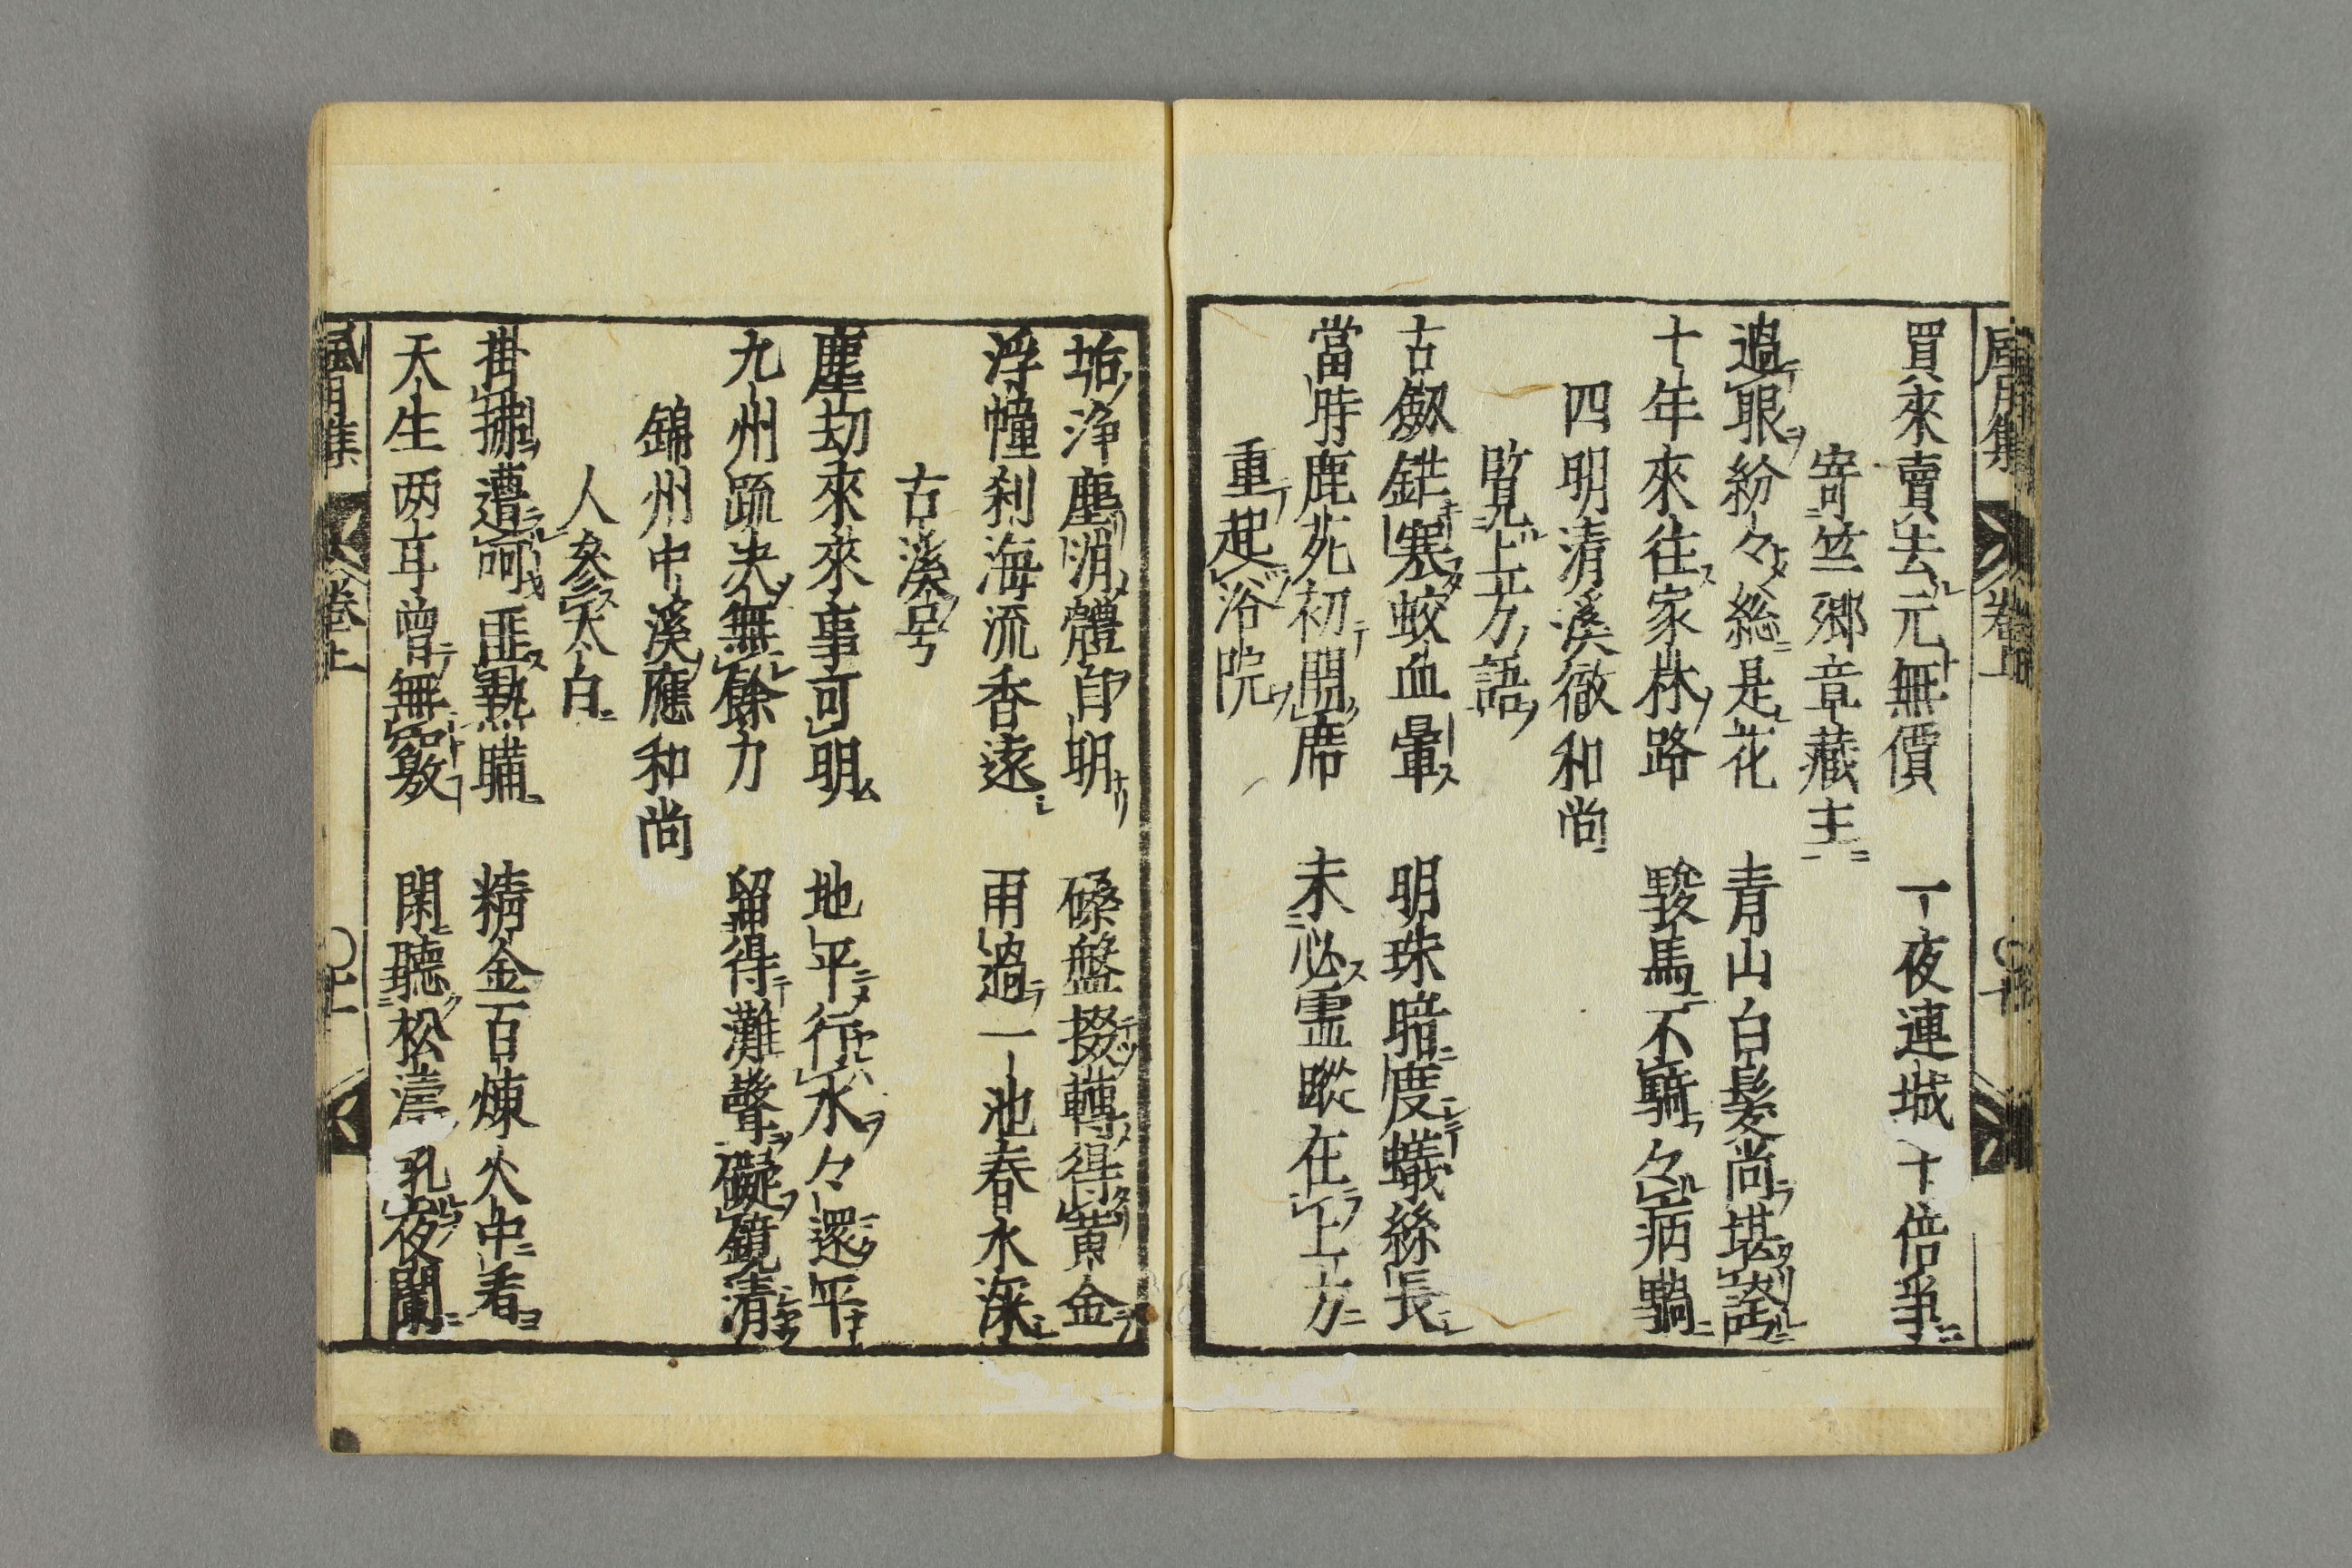 買來賣去元無價　一夜連城十倍爭
寄竺卿章藏主
過眼紛々総是花　青山白髪尚堪誇
十年來往家林路　駿馬不騎々病騧
四明清溪徹和尚
覧上方語
古劔銋塞蛟血暈　明珠暗度蟻絲長
當時鹿苑初開席　未必靈蹤在上方
重起浴院
垢浄塵消體自明　磉盤掇轉得黄金
浮幢刹海流香遠　用過一池春水深
古溪号
塵劫來來事可明　地平行水々還平
九州䟽决無餘力　留得灘聲礙鏡清
錦州中溪應和尚
人叅太白
掛搦遭呵匪熱瞞　精金百煉火中看
天生两耳曾無竅　閑聽松濤吼夜闌
卷上
卷上